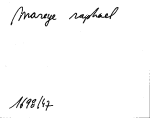 mareye raphael
1698/47